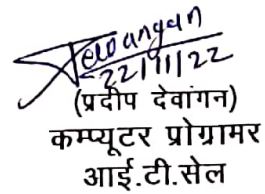 Dewangan
22/11/22
(प्रदीप देवांगन)
कम्प्यूटर प्रोग्रामर
आई.टी.सेल